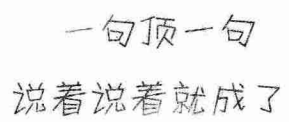 一句顶一句
说着说着就成了